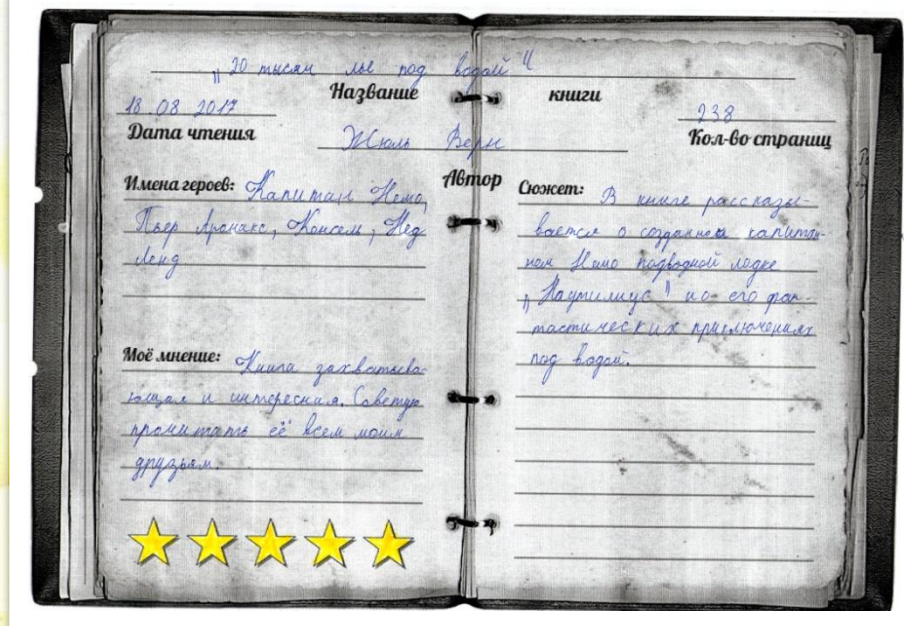 „20 тысяч лье под водой“
Название книги
18.08.2017
Дата чтения
238
Кол-во страниц
Жюль Верн
Автор
Имена героев: Капитан Немо,
Пьер Аронакс, Консель, Нед
Ленд
Моё мнение: Книга захватыва-
ющая и интересная. Советую
прочитать её всем моим
друзьям.
Сюжет: В книге рассказы-
вается о созданной капита-
ном Немо подводной лодке
„Наутилиус“ и о его фан-
тастических приключениях
под водой.